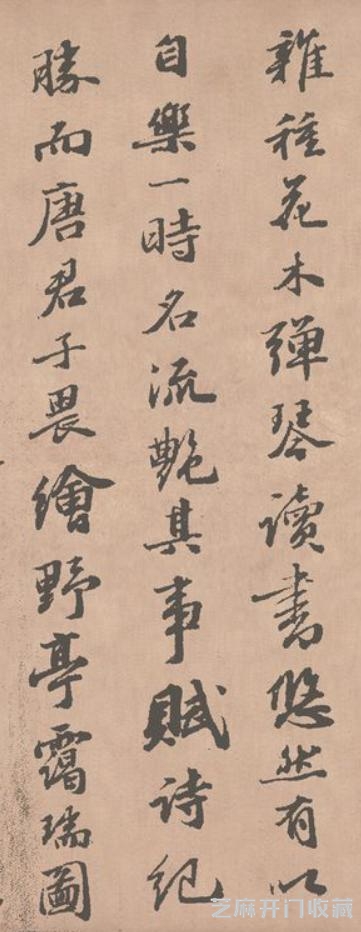 雜種花木彈琴讀書悠然有以
自樂一時名流艷其事賦詩紀
勝而唐君子畏繪野亭靄瑞圖
芝麻开门收藏